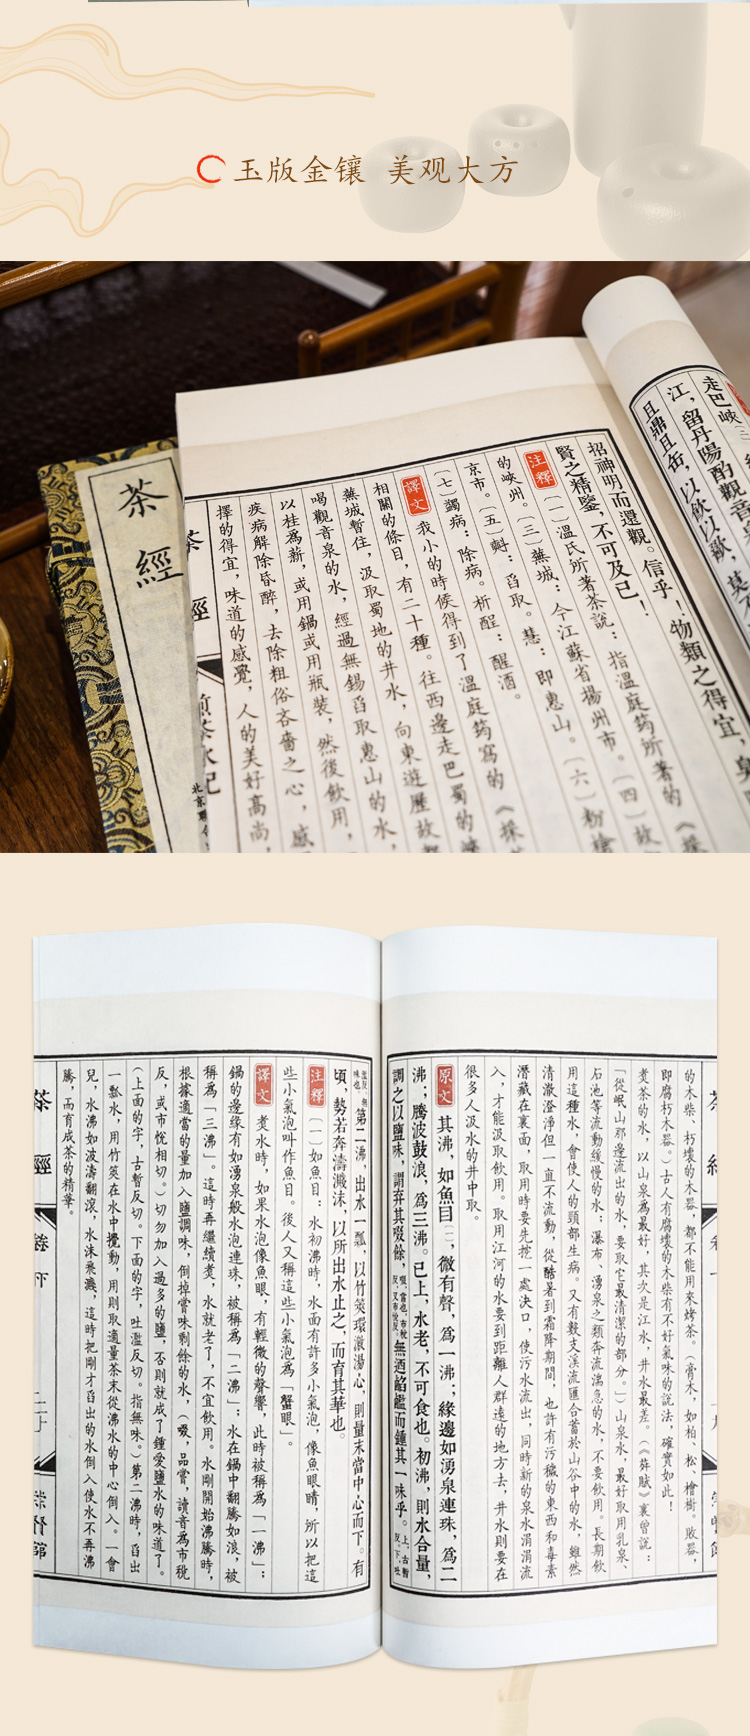 玉版金镶 美观大方
走巴峽
江，留丹陽酌觀音
且鼎且缶，以飲以歠，莫
招神明而還觀。信乎！物類之得宜，臭
賢之精鑒，不可及已！
注釋 （一）溫氏所著茶說：指溫庭筠所著的《採
的峽州。（三）蕪城：今江蘇省揚州市。（四）故
京市。（五）㪺：舀取。惠：即惠山。（六）粉槍
（七）蠲病：除病。析酲：醒酒。
譯文 我小的時候得到了溫庭筠寫的《採
相關的條目，有二十種。往西邊走巴蜀的峽
蕪城暫住，汲取蜀地的井水，向東遊歷故都
喝觀音泉的水，經過無錫舀取惠山的水，
以桂為薪，或用鍋或用瓶裝，然後飲用，
疾病解除昏醉，去除粗俗吝嗇之心，感
擇的得宜，味道的感覺，人的美好高尚，
茶 經
煎茶水記
茶經
北京聯合
的木柴、朽壞的木器，都不能用來烤茶。（膏木，如柏、松、檜樹。敗器，
即腐朽木器。）古人有腐壞的木柴有不好氣味的說法，確實如此！
煮茶的水，以山泉為最好，其次是江水，井水最差。（《荈賦》裏曾說：
「從岷山那邊流出的水，要取它最清潔的部分。」）山泉水，最好取用乳泉、
石池等流動緩慢的水；瀑布、湧泉之類奔流湍急的水，不要飲用。長期飲
用這種水，會使人的頸部生病。又有數支溪流匯合蓄於山谷中的水，雖然
清澈澄淨但一直不流動，從酷暑到霜降期間，也許有污穢的東西和毒素
潛藏在裏面，取用時要先挖一處決口，使污水流出，同時新的泉水涓涓流
入，才能汲取飲用。取用江河的水要到距離人群遠的地方去，井水則要在
很多人汲水的井中取。
原文 其沸，如魚目（一），微有聲，為一沸；緣邊如湧泉連珠，為二
沸；騰波鼓浪，為三沸。已上，水老，不可食也。初沸，則水合量，
調之以鹽味，謂弃其啜餘，啜，嘗也，市稅反，又市悅反。無迺䭑䭕而鍾其一味乎。上，古暫反。下，吐
濫反，無味也。第二沸，出水一瓢，以竹筴環激湯心，則量末當中心而下。有
頃，勢若奔濤濺沫，以所出水止之，而育其華也。
注釋 （一）如魚目：水初沸時，水面有許多小氣泡，像魚眼睛，所以把這
些小氣泡叫作魚目。後人又稱這些小氣泡為「蟹眼」。
譯文 煮水時，如果水泡像魚眼，有輕微的聲響，此時被稱為「一沸」；
鍋的邊緣有如湧泉般水泡連珠，被稱為「二沸」；水在鍋中翻騰如浪，被
稱為「三沸」。這時再繼續煮，水就老了，不宜飲用。水剛開始沸騰時，
根據適當的量加入鹽調味，倒掉嘗味剩餘的水，（啜，品嘗，讀音為市稅
反，或市悅相切。）切勿加入過多的鹽，否則就成了鍾愛鹽水的味道了。
（上面的字，古暫反切。下面的字，吐濫反切。指無味。）第二沸時，舀出
一瓢水，用竹筴在水中攪動，用則取適量茶末從沸水的中心倒入。一會
兒，水沸如波濤翻滾，水沫飛濺，這時把剛才舀出的水倒入使水不再沸
騰，而育成茶的精華。
茶 經
卷下
二十